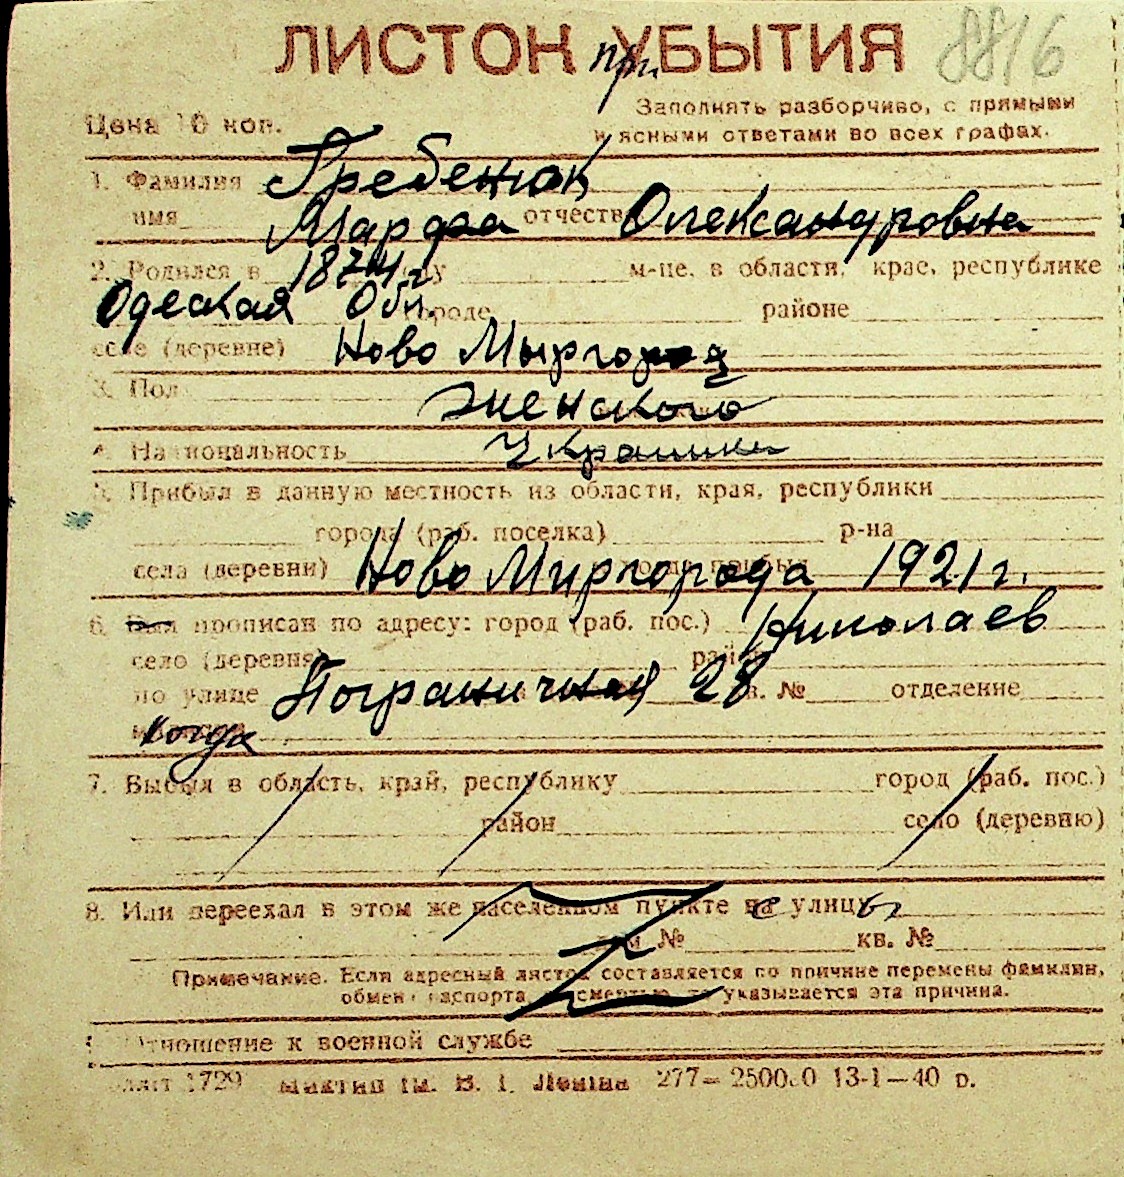 ЛИСТОК при УБЫТИЯ 8816
Цена 10 коп. Заполнять разборчиво, с прямыми
и ясными ответами во всех графах.
1. Фамилия Гребенюк
имя Марфа отчество Олександровна
2. Родился в 1874 г году м-це, в области, крае, республике
Одеская Обл. городе районе
селе (деревне) Ново Мыргород
3. Пол женского
4. Национальность Украинка
5. Прибыл в данную местность из области, края, республики
города (раб. поселка) р-на
села (деревни) Ново Миргорода 1921 г.
6. Был прописан по адресу: город (раб. пос.) Николаев
село (деревня) район
по улице Пограничная 28 кв. № отделение
когда
7. Выбыл в область, край, республику город (раб. пос.)
район село (деревню)
8. Или переехал в этом же населенном пункте с улицы
дом № кв. №
Примечание. Если адресный листок составляется по причине перемены фамилии,
обмена паспорта, смертью, то указывается эта причина.
9. Отношение к военной службе
1729 им. В. И. Ленина 277—250000 13-I—40 р.